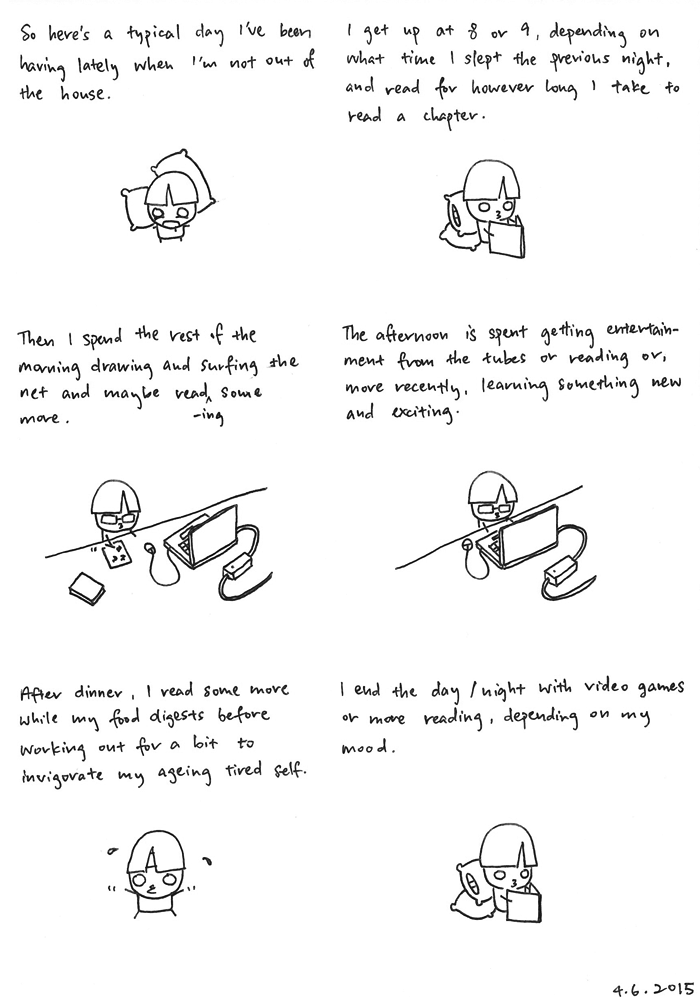 So here's a typical day I've been
having lately when I'm not out of
the house.
I get up at 8 or 9, depending on
what time I slept the previous night,
and read for however long I take to
read a chapter.
Then I spend the rest of the
morning drawing and surfing the
net and maybe read^ some
-ing
more.
The afternoon is spent getting entertain-
ment from the tubes or reading or,
more recently, learning something new
and exciting.
After dinner, I read some more
while my food digests before
working out for a bit to
invigorate my ageing tired self.
I end the day/night with video games
or more reading, depending on my
mood.
4.6.2015